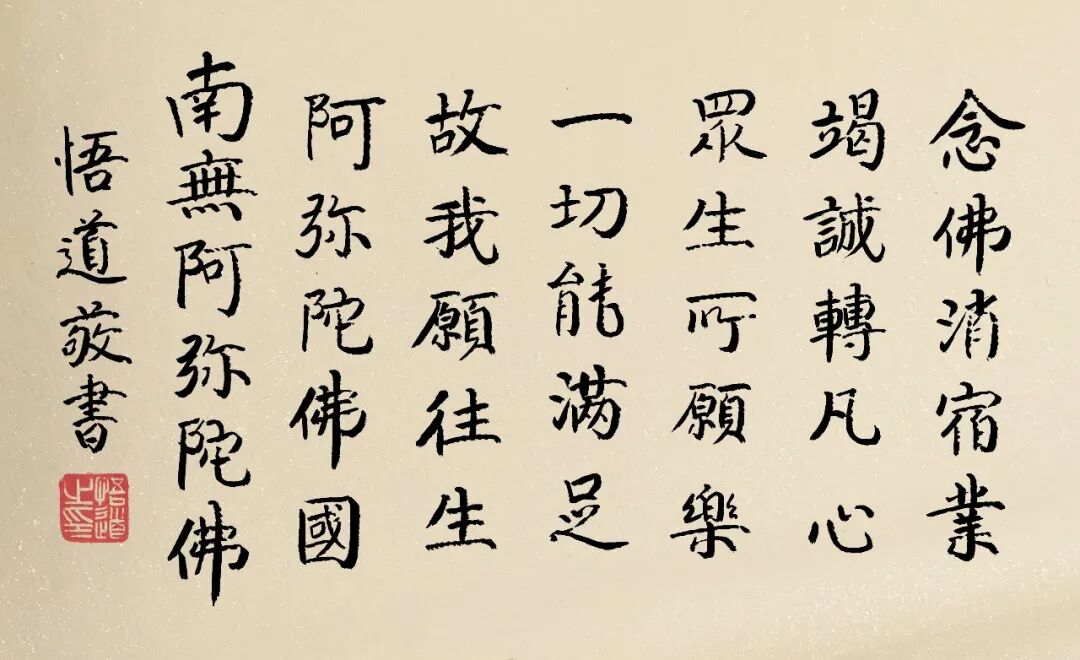 念佛消宿業
竭誠轉凡心
眾生所願樂
一切能滿足
故我願往生
阿弥陀佛國
南無阿弥陀佛
悟道敬書
悟道之印